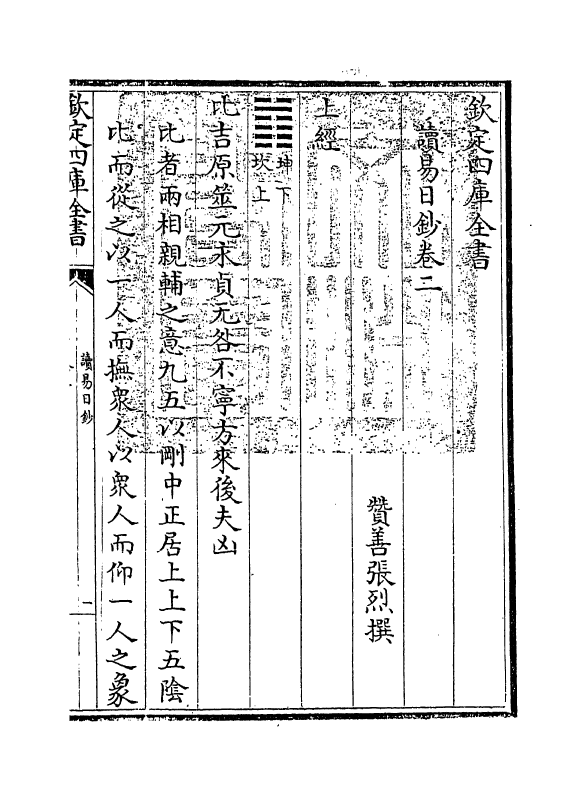 欽定四庫全書
讀易日鈔卷二
贊善張烈撰
上經
坤下
坎上
比吉原筮元永貞无咎不寧方來後夫凶
比者兩相親輔之意九五以剛中正居上上下五陰
比而從之以一人而撫衆人以衆人而仰一人之象
欽定四庫全書
讀易日鈔
一